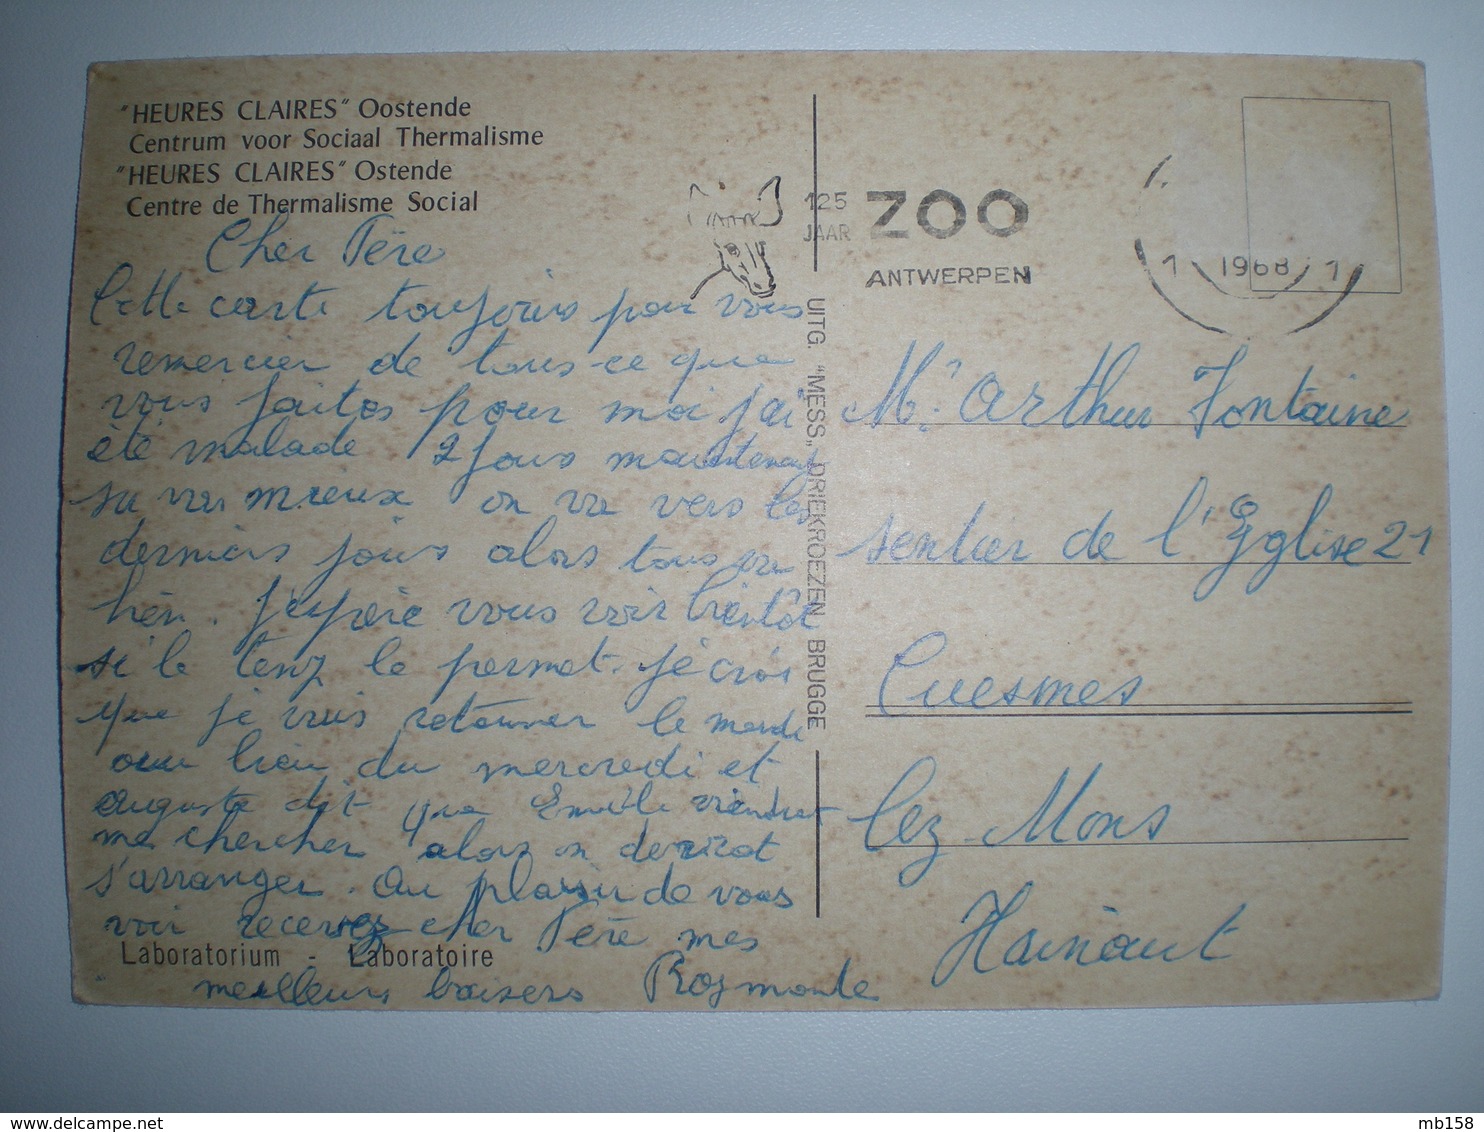 "HEURES CLAIRES" Oostende
Centrum voor Sociaal Thermalisme
"HEURES CLAIRES" Ostende
Centre de Thermalisme Social
Cher Père
Cette carte toujours pour vous
remercier de tous ce que
vous faites pour moi j'ai
été malade 2 jours maintenant
sa va mieux on va vers les
derniers jours alors tous va
bien. J'espère vous voir bientôt
si le temp le permet. je crois
que je vais retourner le mardi
au lieu du mercredi et
auguste dit que Emile viendrat
me chercher alors on devrat
s'arranger. Au plaisir de vous
voir recevez cher Père mes
meilleurs baisers Rosmonde
Laboratorium - Laboratoire
UITG. "MESS„ DRIEKROEZEN BRUGGE
125
JAAR
ZOO
ANTWERPEN
1 1968 1
Mr. Arthur Fontaine
sentier de l'Eglise 21
Cuesmes
lez-Mons
Hainaut
mb158